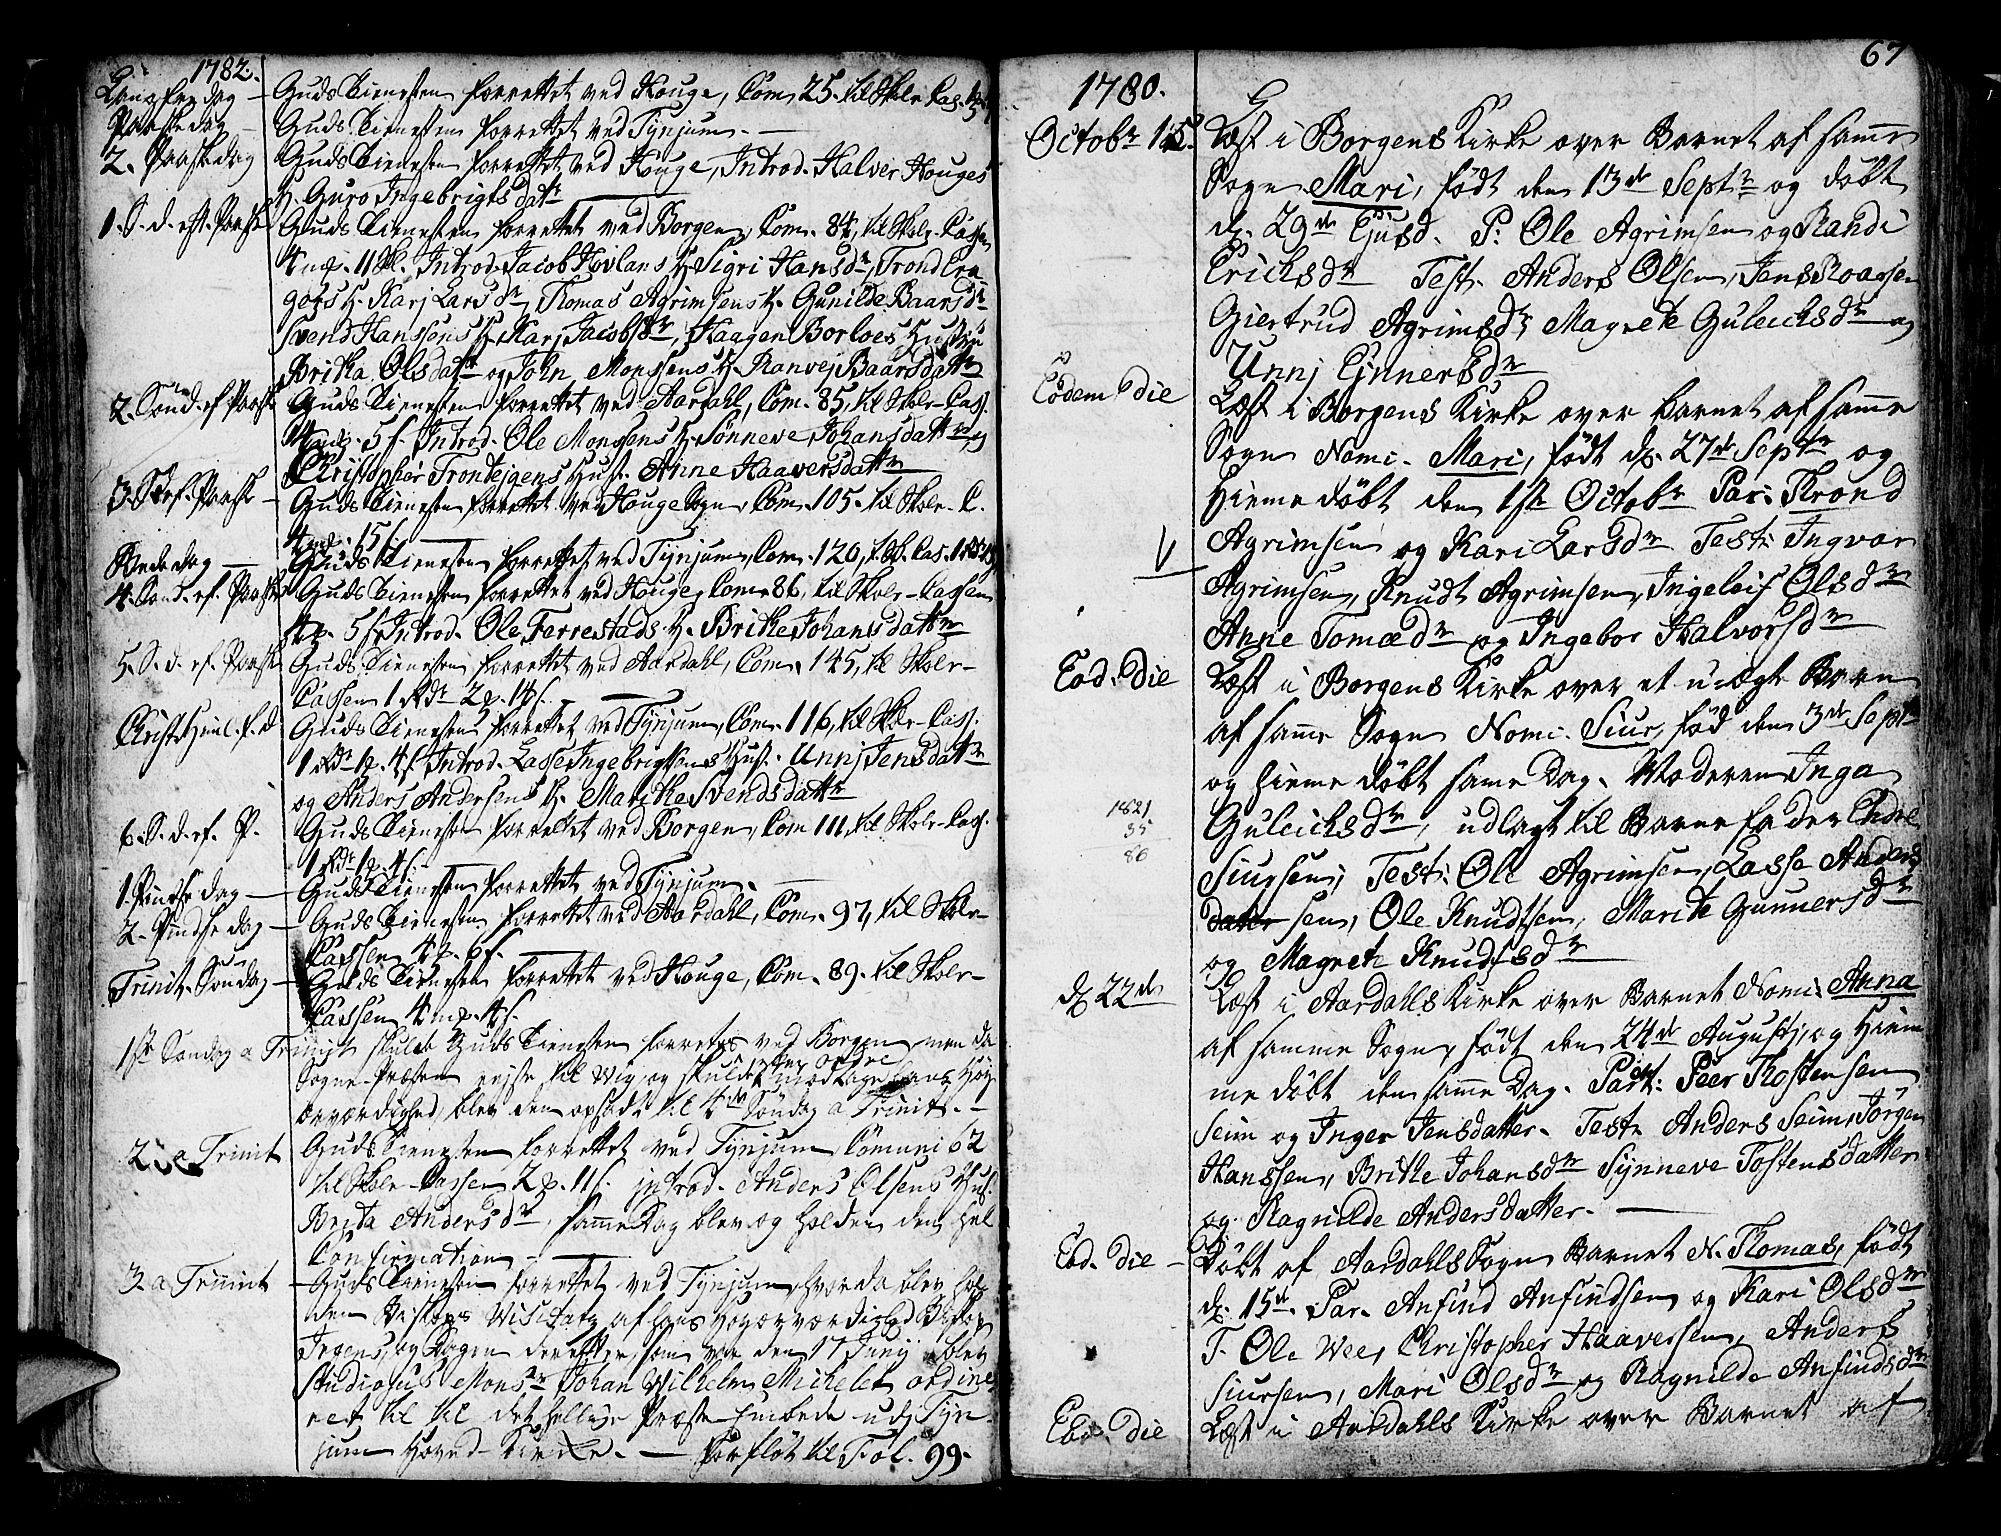 1782.
Langfredag — Guds Tienesten forrettet ved Houge, Com. 25. til Skole Cas.
Paaskedag — Guds Tienesten forrettet ved Tynjum. —
2. Paaskedag Guds Tienesten forrettet ved Houge, Introd. Halver Houges
H. Guro Ingebrigtsdatr
1. S. d. eft. Paaske Guds Tienesten forrettet ved Borgen, Com. 84, til Skole Cassen
4 mp. 11 sk. Introd. Jacob Hovlans H. Sigri Hansdr, Trond
H. Karj Larsdr, Thomas Agrimsens H. Gunilde Baarsdr
Svend Hanssøns H. Karj Jacobsdr, Haagen Borloes Hustrue
Britha Olsdatr og John Monsens H. Ranvej Baarsdatr
2. Sønd. ef. Paaske Guds Tienesten forrettet ved Aardahl, Com. 85, til Skole-Cass.
5 s. Introd. Ole Monsens H. Sønneve Johansdattr og
Christopher Trondtejgens Hust. Anne Haaversdattr
3. S. ef. Paaske — Guds Tienesten forrettet ved Houge Sogn, Com. 105. til Skole-C.
4 mp. 15 s.
Bededag — Guds Tienesten forrettet ved Tynjum, Com. 120, t. Sk. Cas. 1 Rdr
4. Sønd. ef. Paaske Guds Tienesten forrettet ved Houge, Com. 86, til Skole-Cassen
4 p. 5 s. Introd. Ole Ferrestads H. Brithe Johansdattr
5. S. d. ef. Paaske Guds Tienesten forrettet ved Aardahl, Com. 145, til Skole-
Cassen 1 Rdr 2 p. 14 s.
Christi Himl. f. d. Guds Tienesten forrettet ved Tynjum, Com. 116, til Skole-Cass.
1 Rdr 1 p. 4 s. Introd. Lasse Ingebrigtsens Hus. Unnj Jensdattr
og Anders Andersens H. Marithe Svendsdattr
6. S. d. ef. P. Guds Tienesten forrettet ved Borgen, Com 111, til Skole-Cass.
1 Rdr 1 p. 4 s. —
1. Pindse dag — Guds Tienesten forrettet ved Tynjum. —
2. Pindse dag — Guds Tienesten forrettet ved Aardahl, Com. 97, til Skole-
Cassen 4 p. 6 s.
Trinit. Søndag — Guds Tienesten forrettet ved Houge, Com. 89. til Skole-
Cassen 4 mp. 4 s.
1ste Søndag a Trinit skulde Guds Tienesten forrettes ved Borgen, men da
Sogne-Præsten rejste til Wig, og skulde efter ordre modtage hans Høy
ærværdighed, blev den opsadt til 4de Søndag a Trinit. —
2. a Trinit Guds Tienesten forrettet ved Tynjum, Comuni 62
til Skole-Cassen 2 p. 11 s. introd. Anders Olsens Hus.
Brita Andersdr, samme Dag blev og holden den hel
Confirmation —
3 a Trinit — Guds Tienesten forrettet ved Tynjum, hvor da blev hol
den Biskops Visitatz af hans Højærværdighed Biskop
Irgens, og Dagen derefter, som var den 17 Junij blev
Studiosus Monsr Johan Wilhelm Michelet ordine
ret til til det hellige Præste-Embede udj Tyn-
jum Hoved-Kirke. — Forfløt til Fol. 99.
67
1780.
Octobr 15. Læst i Borgens Kirke over Barnet af samme
Sogn Mari, født den 13de Septr og døbt
d. 29de Ejusd. P. Ole Agrimsen og Randi
Erichsdr Test. Anders Olsen, Jens Roarsen
Giertrud Agrimsdr, Magrete Guleichsdr og
Unnj Ejnnersdr
Eodem Die Læst i Borgens Kirke over barnet af samme
Sogn Nomi. Mari, født d. 27de Septr og
hieme døbt den 1ste Octobr Par. Thrond
Agrimsen og Kari Larsdr Test. Ingvar
Agrimsen, Knudt Agrimsen, Ingeleif Olsdr
Anne Tomædr og Ingebor Halvorsdr
Eod. Die Læst i Borgens Kirke over et uægte Barn
af samme Sogn Nomi. Siur, fød den 3de Septr
og hieme døbt same Dag. Moderen Inga
Guleichsdr, udlagt til Barne fader Endre
1821
35
86
Siursen, Test. Ole Agrimsen, Lasse Anders
dater sen, Ole Knudtsen, Marite Gunnersdr
og Magrete Knudsdr
d. 22de Læst i Aardalls Kirke over Barnet Nomi. Anna
af samme Sogn, født den 24de Augustj, og hiem
me døbt den samme Dag. Part. Peer Thostensen
Seim og Inger Jensdatter. Test. Anders Seim, Jørgen
Hanssen, Brithe Johansdr Synneve Tostensdatter
og Ragnilde Andersdatter. —
Eod. Die — Døbt af Aardalls Sogn Barnet N. Thomas, født
d. 15de. Par. Anfind Anfindsen og Kari Olsdr
T. Ole Wee, Christopher Haaversen, Anders
Siursen, Mari Olsdr og Ragnilde Anfindsdr
Eod. Die Læst i Aardalls Kirke over Barnet af